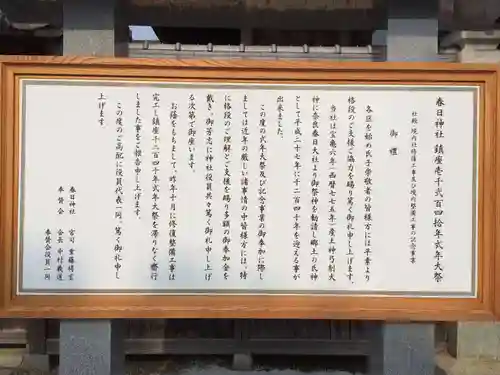 春日神社 鎮座壱千弐百四拾年式年大祭
社殿、境内社修復工事及び境内整備工事の記念事業
御禮
各区を始め氏子崇敬者の皆様方には平素より
格段のご支援ご協力を賜り篤く御礼申し上げます。
当社は宝亀六年(西暦七七五年)産土神乃制大
神に奈良春日大社より御祭神を勧請し郷土の氏神
として平成二十七年に千二百四十年を迎える事が
出来ました。
この度の式年大祭及び記念事業の御参加に際し
ましては近年の厳しい諸事情の中皆様方には、特
に格段のご理解とご支援を賜り多額の御参加金を
戴き、御芳志に神社役員共々篤く御礼申し上げ
る次第で御座います。
お蔭をもちまして、昨年十月に修復整備工事は
完工し鎮座千二百四十年式年大祭を滞りなく齋行
しました事をご報告申し上げます。
この度のご高配に役員代表一同、篤く御礼申し
上げます。
春日神社 宮司
奉賛会 会長 中村義道
奉賛会役員一同